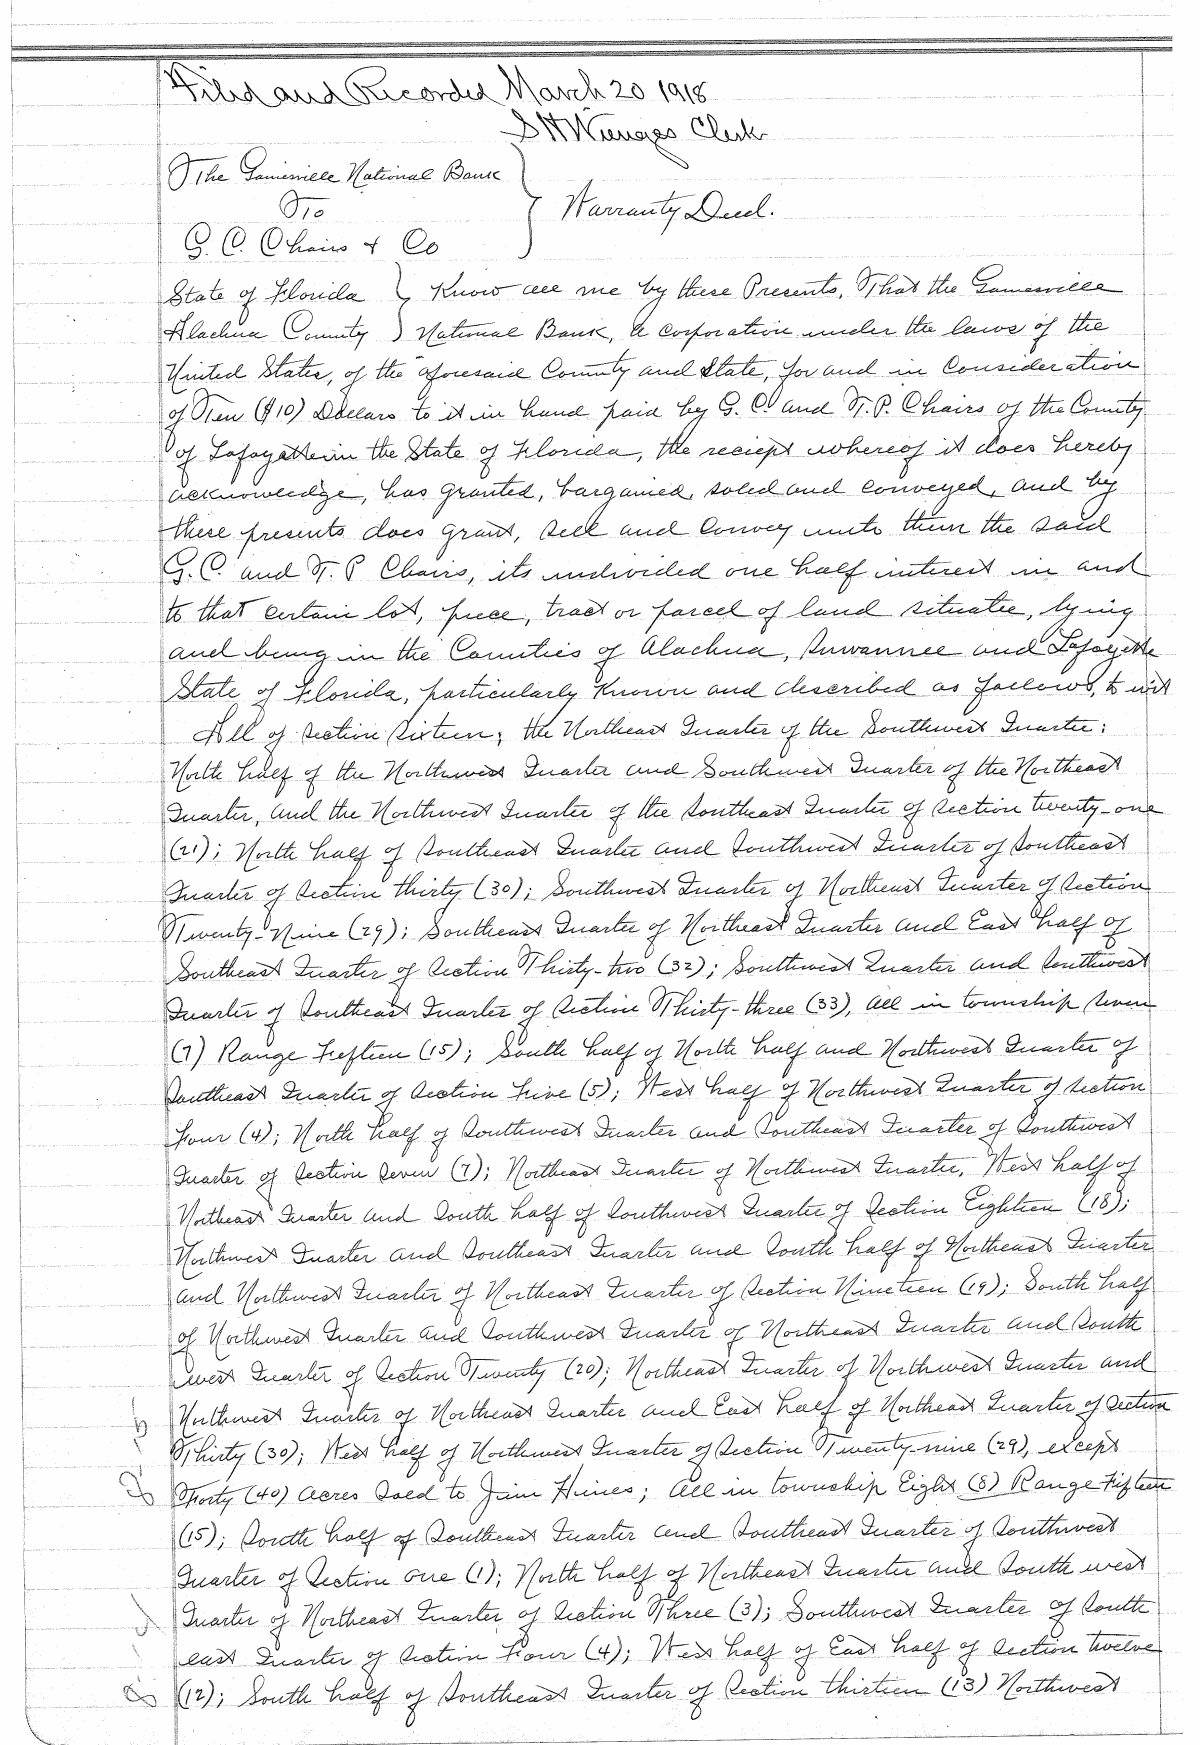 Filed and Recorded March 20 1918
S H Wienges Clerk
The Gainesville National Bank
To
Warranty Deed.
G. C. Chairs & Co
State of Florida } Know all me by these Presents, That the Gainesville
Alachua County } National Bank, a corporation under the laws of the
United States, of the aforesaid County and State, for and in Consideration
of Ten ($10) Dollars to it in hand paid by G. C. and T. P. Chairs of the County
of Lafayette in the State of Florida, the reciept whereof it does hereby
acknowledge, has granted, bargained, soled and conveyed, and by
these presents does grant, sell and Convey unto them the said
G. C. and T. P Chairs, its undivided one half interest in and
to that certain lot, piece, tract or parcel of land situate, lying
and being in the Counties of Alachua, Suwannee and Lafayette
State of Florida, particularly Known and described as follows, to wit
All of Section Sixteen; the Northeast Quarter of the Southwest Quarter;
North half of the Northwest Quarter and Southwest Quarter of the Northeast
Quarter, and the Northwest Quarter of the Southeast Quarter of Section twenty-one
(21); North half of Southeast Quarter and Southwest Quarter of Southeast
Quarter of Section thirty (30); Southwest Quarter of Northeast Quarter of Section
Twenty-Nine (29); Southeast Quarter of Northeast Quarter and East half of
Southeast Quarter of Section Thirty-two (32); Southwest Quarter and Southwest
Quarter of Southeast Quarter of Section Thirty-three (33), all in township seven
(7) Range Fifteen (15); South half of North half and Northwest Quarter of
Southeast Quarter of Section Five (5); West half of Northwest Quarter of Section
Four (4); North half of Southwest Quarter and Southeast Quarter of Southwest
Quarter of Section Seven (7); Northeast Quarter of Northwest Quarter, West half of
Northeast Quarter and South half of Southwest Quarter of Section Eighteen (18);
Northwest Quarter and Southeast Quarter and South half of Northeast Quarter
and Northwest Quarter of Northeast Quarter of Section Nineteen (19); South half
of Northwest Quarter and Southwest Quarter of Northeast Quarter and South
west Quarter of Section Twenty (20); Northeast Quarter of Northwest Quarter and
Northwest Quarter of Northeast Quarter and East half of Northeast Quarter of Section
Thirty (30); West half of Northwest Quarter of Section Twenty-nine (29), except
Forty (40) acres Soled to Jim Hines; all in township Eight (8) Range Fifteen
(15); South half of Southeast Quarter and Southeast Quarter of Southwest
Quarter of Section one (1); North half of Northeast Quarter and South west
Quarter of Northeast Quarter of Section Three (3); Southwest Quarter of South
east Quarter of Section Four (4); West half of East half of Section twelve
(12); South half of Southeast Quarter of Section thirteen (13) Northwest